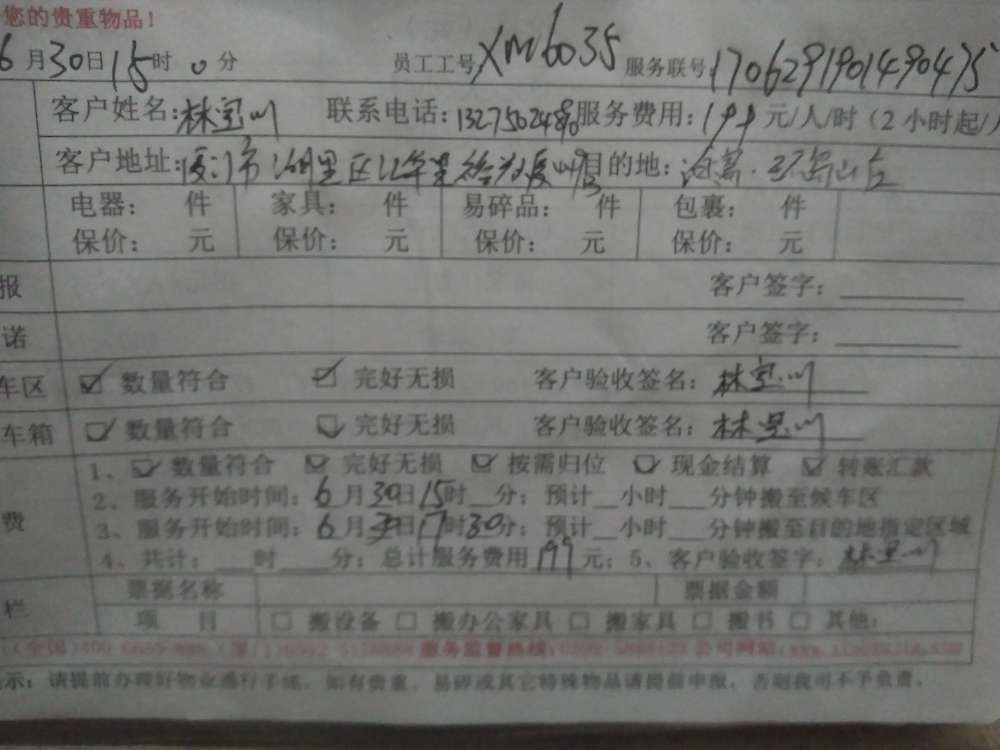 您的贵重物品!
6月30日15时0分 员工工号:XM6035 服务联号:1706291901490475
客户姓名:林宝川 联系电话:13275024880 服务费用:199元/人/时(2小时起/
客户地址:厦门市湖里区 目的地:
电器: 件 家具: 件 易碎品: 件 包裹: 件
保价: 元 保价: 元 保价: 元 保价: 元
报 客户签字:
诺 客户签字:
车区 ☑ 数量符合 ☑ 完好无损 客户验收签名:林宝川
车箱 ☑ 数量符合 ☑ 完好无损 客户验收签名:林宝川
1、☑ 数量符合 ☑ 完好无损 ☑ 按需归位 ☑ 现金结算 ☑ 转账汇款
2、服务开始时间:6月30日15时__分;预计__小时___分钟搬至候车区
费 3、服务开始时间:6月30日17时30分;预计__小时___分钟搬至目的地指定区域
4、共计:___时____分;总计服务费用199元;5、客户验收签字:林宝川
票据名称 票据金额
栏 项 目 □ 搬设备 □ 搬办公家具 □ 搬家具 □ 搬书 □ 其他:
服务监督热线: 公司网站:
示:请提前办理好物业通行手续,如有贵重、易碎或其它特殊物品请提前申报,否则我司不予负责。